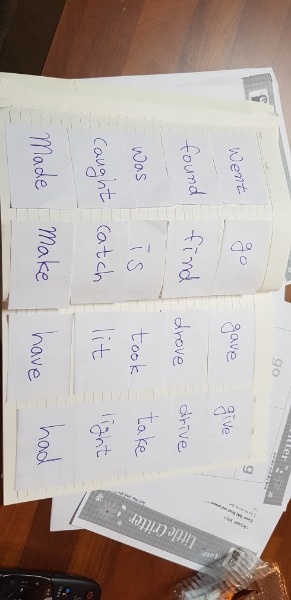 Went go gave give
found find drove drive
was is took take
caught catch lit light
Made Make have had
go
Little Critter